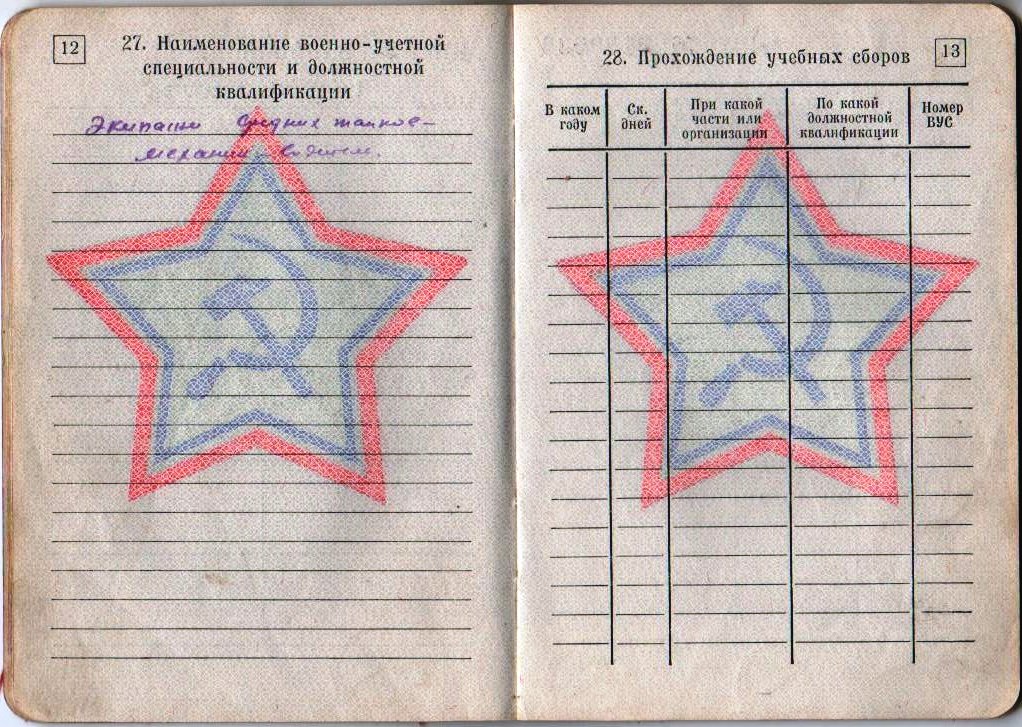 12
27. Наименование военно-учетной
специальности и должностной
квалификации
Экипажи средних танков-
механик водитель.
28. Прохождение учебных сборов
13
В каком году
Ск. дней
При какой части или организации
По какой должностной квалификации
Номер ВУС